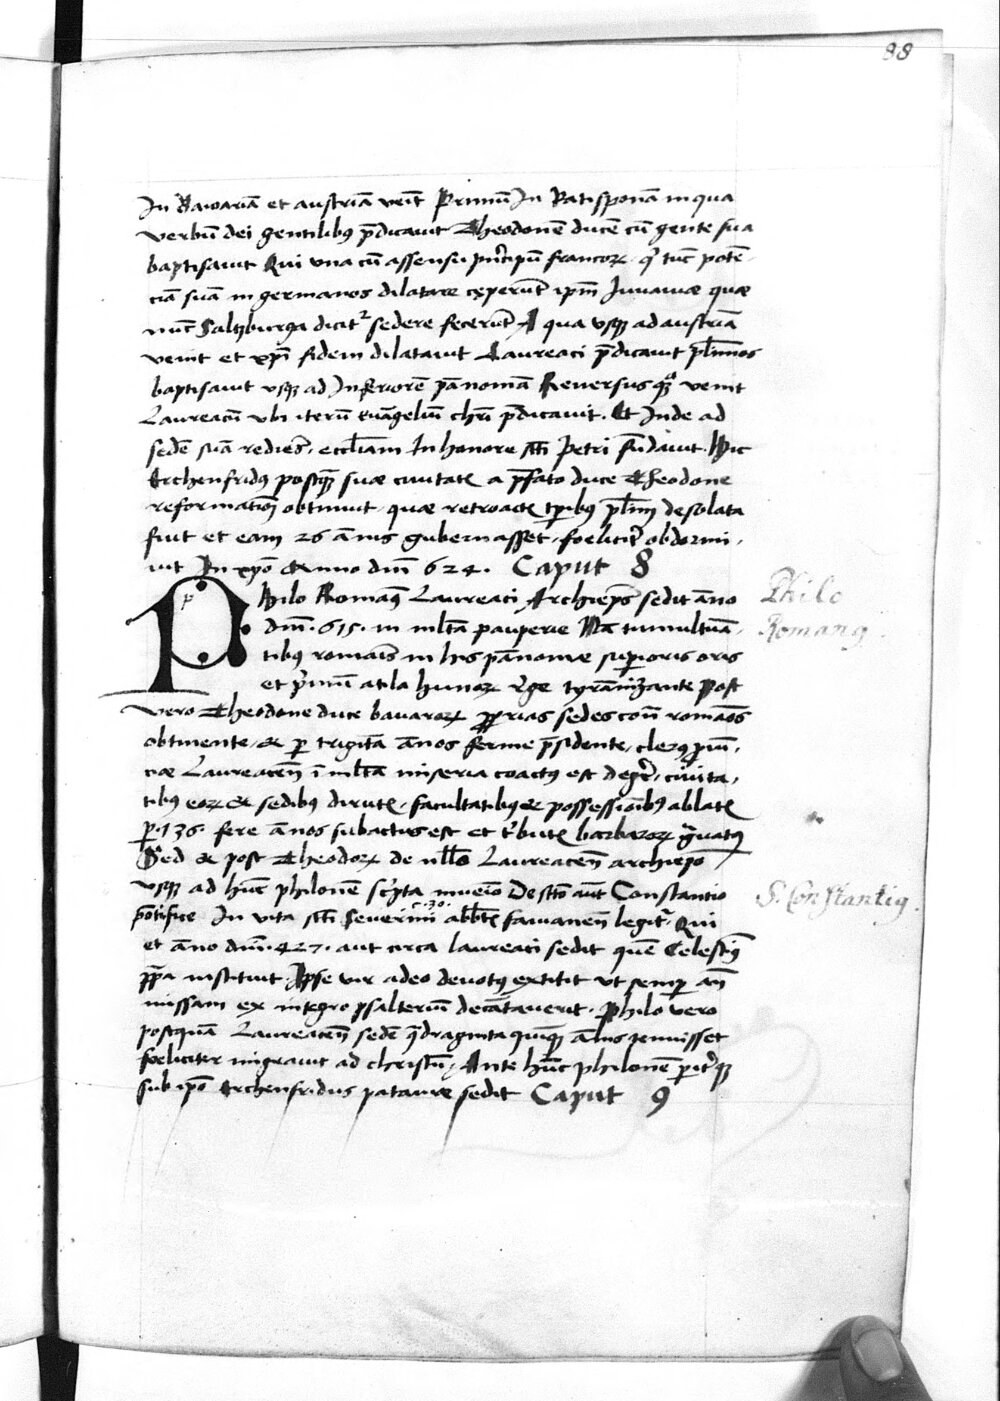 88
In Bavariā et austriā venit Primū In Ratisponā in qua
verbū dei gentilibꝰ p̄dicavit Theodonē ducē cū gente sua
baptisavit Qui una cū assensu prīcipū francoꝝ qͥ tūc potē-
ciā suā in germanos dilatare ceperūt ipm̄ Juvavie quæ
nūc Saltzburga dicitᷣ sedere fecerūt A qua usqꝫ ad austriā
venit et xpi fidem dilatavit Laureaci p̄dicavit pl̄imos
baptisavit usqꝫ ad Inferiorē pānoniā Reversusqꝫ venit
Laureacū ubi iterū evāgeliū chri p̄dicavit. Et Inde ad
sedē suā rediēs, eccliam In honore sc̄ti Petri fūdavit. Hic
Erchenfridꝰ postq̄ suæ civitatꝭ a p̄fato duce Theodone
reformationē obtinuit, quæ retroactꝭ tꝑibus pl̄im desolata
fuit et eam 26 ānis gubernasset, foelicitᷣ obdormi-
vit In xpo Anno dm̄ 624. Caput 8
Philo
Romanꝰ
p
Philo Romanꝰ Laureaci Archiep̄s sedit āno
dm̄. 615. in mlta pauperie Nā tumultuā-
tibus romāis in his pānonie superioris oris
et primū atila hunoꝝ rege tyrānizante Post
vero Theodone duce bavaroꝝ ꝓprias sedes con̄ romāos
obtinente, & ꝑ trigīta ānos ferme p̄sidente, clerꝰ
Laureacen̄ ī mlta miseria coactꝰ est degere, civita-
tibꝰ eoꝝ & sedibꝰ dirutꝭ, facultatibꝰ & possessionibꝰ ablatꝭ
ꝑ. 136. fere ānos subactus est et tributꝭ barbaroꝝ gravatꝰ
Sed & post Theodoꝝ de nllo Laureacen̄ archiepo
usqꝫ ad hūc philonē scripta invenio De scto aūt Constantio
S. Constantiꝰ.
c. 30.
pōtifice In vita sc̄ti Severini abbtꝭ favianen̄ legitᷣ, Qui
et āno dm̄. 427. aut circa laureaci sedit quē Celestinꝰ
ppa instituit. Ipse vir adeo devotꝰ extitit ut semꝑ an̄
missam ex integro psalteriū decātaverit. Philo vero
postquā Laureacen̄ sedē quadraginta quinqꝫ ānis tenuisset
foeliciter migravit ad christū, Ante hūc philonē ꝑiterqꝫ
sub ipo Erchenfridus pataviæ sedit Caput 9